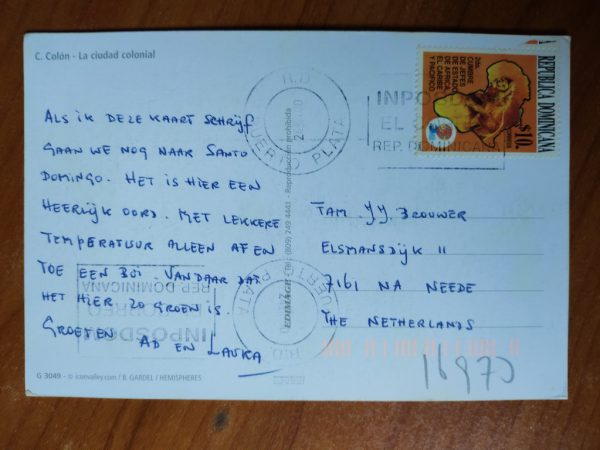 C. Colón - La ciudad colonial
ALS IK DEZE KAART SCHRIJF
GAAN WE NOG NAAR SANTO
DOMINGO. HET IS HIER EEN
HEERLIJK OORD. MET LEKKERE
TEMPERATUUR ALLEEN AF EN
TOE EEN BUI. VANDAAR DAT
HET HIER ZO GROEN IS.
GROETEN AD EN
G 3049 - © iconvalley.com / B. GARDEL / HEMISPHERES
EDIMAGE (809) 249 4443 - Reproduccion prohibida
REPUBLICA DOMINICANA
2da. CUMBRE
DE JEFES
DE ESTADO
DE AFRICA,
EL CARIBE
Y PACIFICO
$10
R.D.
PUERTO PLATA
INPOSDOM
EL
REP. DOMINICANA
FAM. J.J. BROUWER
ELSMANSDIJK 11
7161 NA NEEDE
THE NETHERLANDS
PUERTO PLATA
R.D.
INPOSDOM
CORREO
REP. DOMINICANA